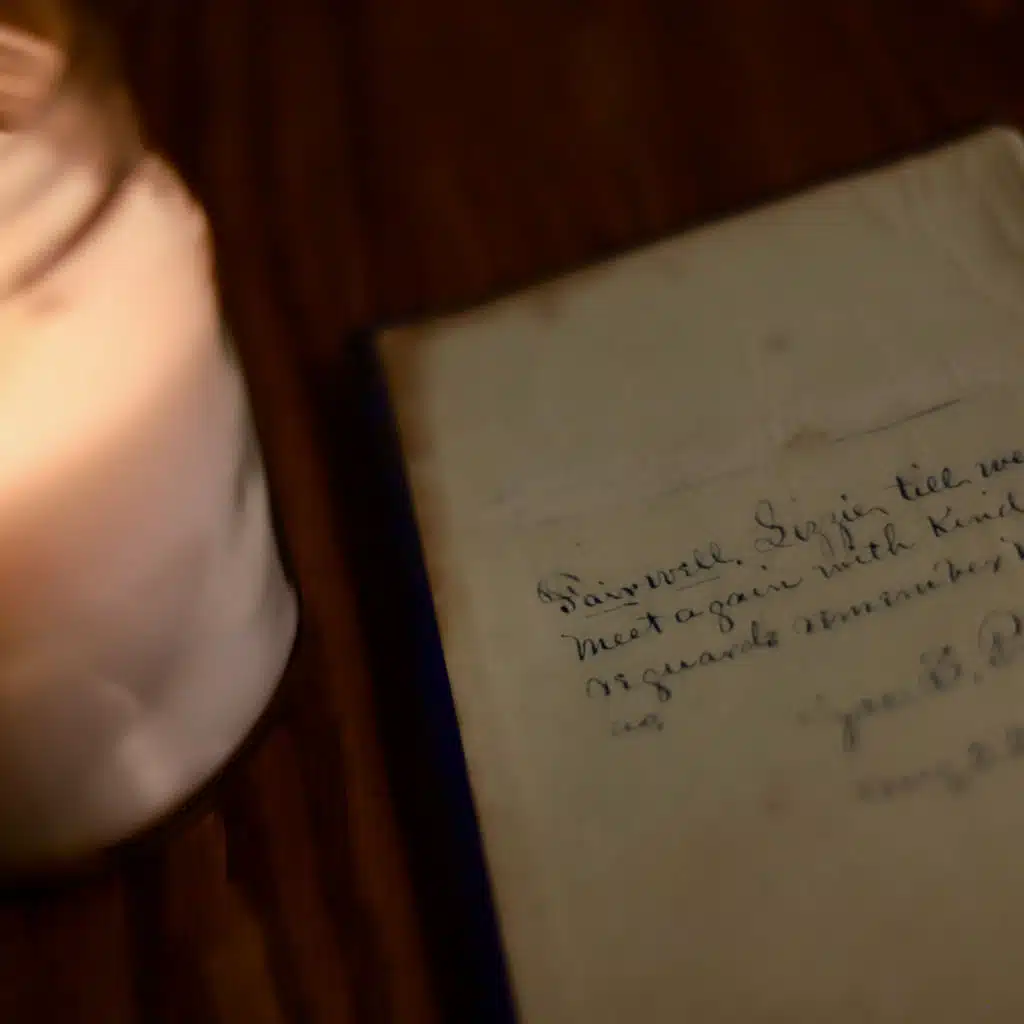 Fairwell. Lizzie, till we
meet again with Kind
reguards remember
us,
B.